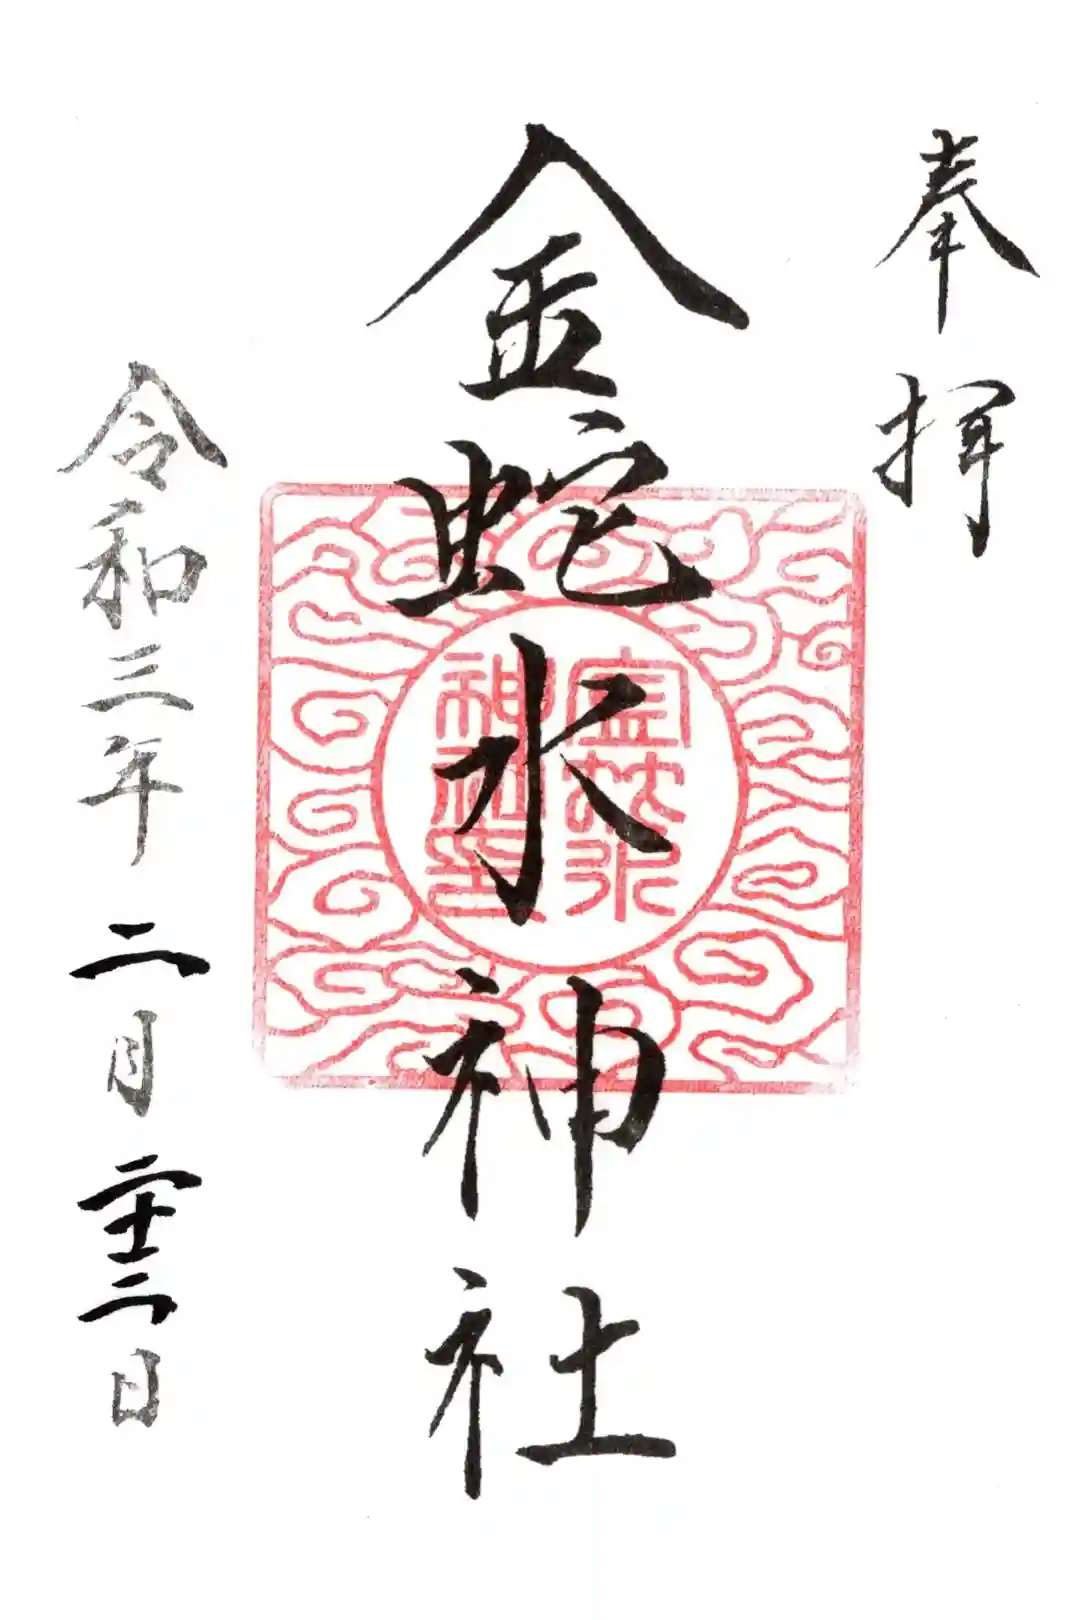 奉拝
金蛇水神社
令和三年二月二十三日
金蛇水
神社印